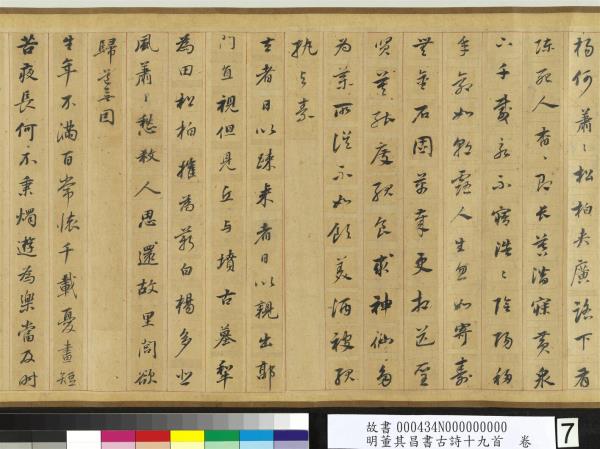 楊何蕭〻松柏夾廣路下有
陳死人杳〻即長暮潛寐黃泉
下千載永不寤浩〻陰陽移
年命如朝露人生忽如寄壽
無金石固萬年更相送聖
賢莫能度服食求神仙多
為藥所誤不如飲美酒被服
紈與素
去者日以疎來者日以親出郭
門直視但見丘與墳古墓犁
為田松柏摧為薪白楊多悲
風蕭〻愁殺人思還故里閭欲
歸道無因
生年不滿百常懷千載憂晝短
苦夜長何不秉燭遊為樂當及時
故書 000434N000000000
明董其昌書古詩十九首 卷
7